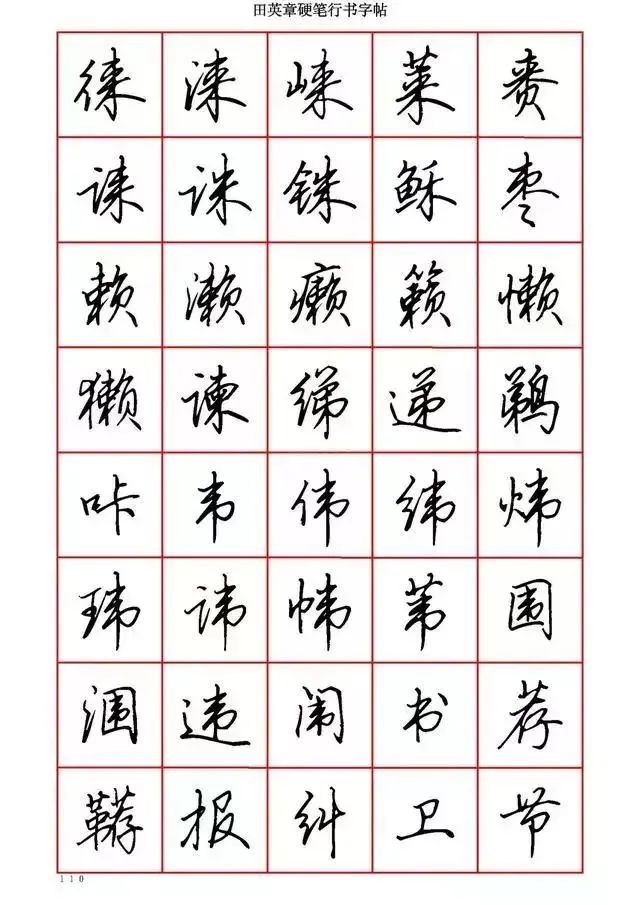 田英章硬笔行书字帖
徕涞崃莱赉
诔诛铢稣枣
赖濑癞籁懒
獭谏绨递鹈
咔韦伟纬炜
玮讳帏苇围
涠违闱书荐
鞯报纠卫节
110